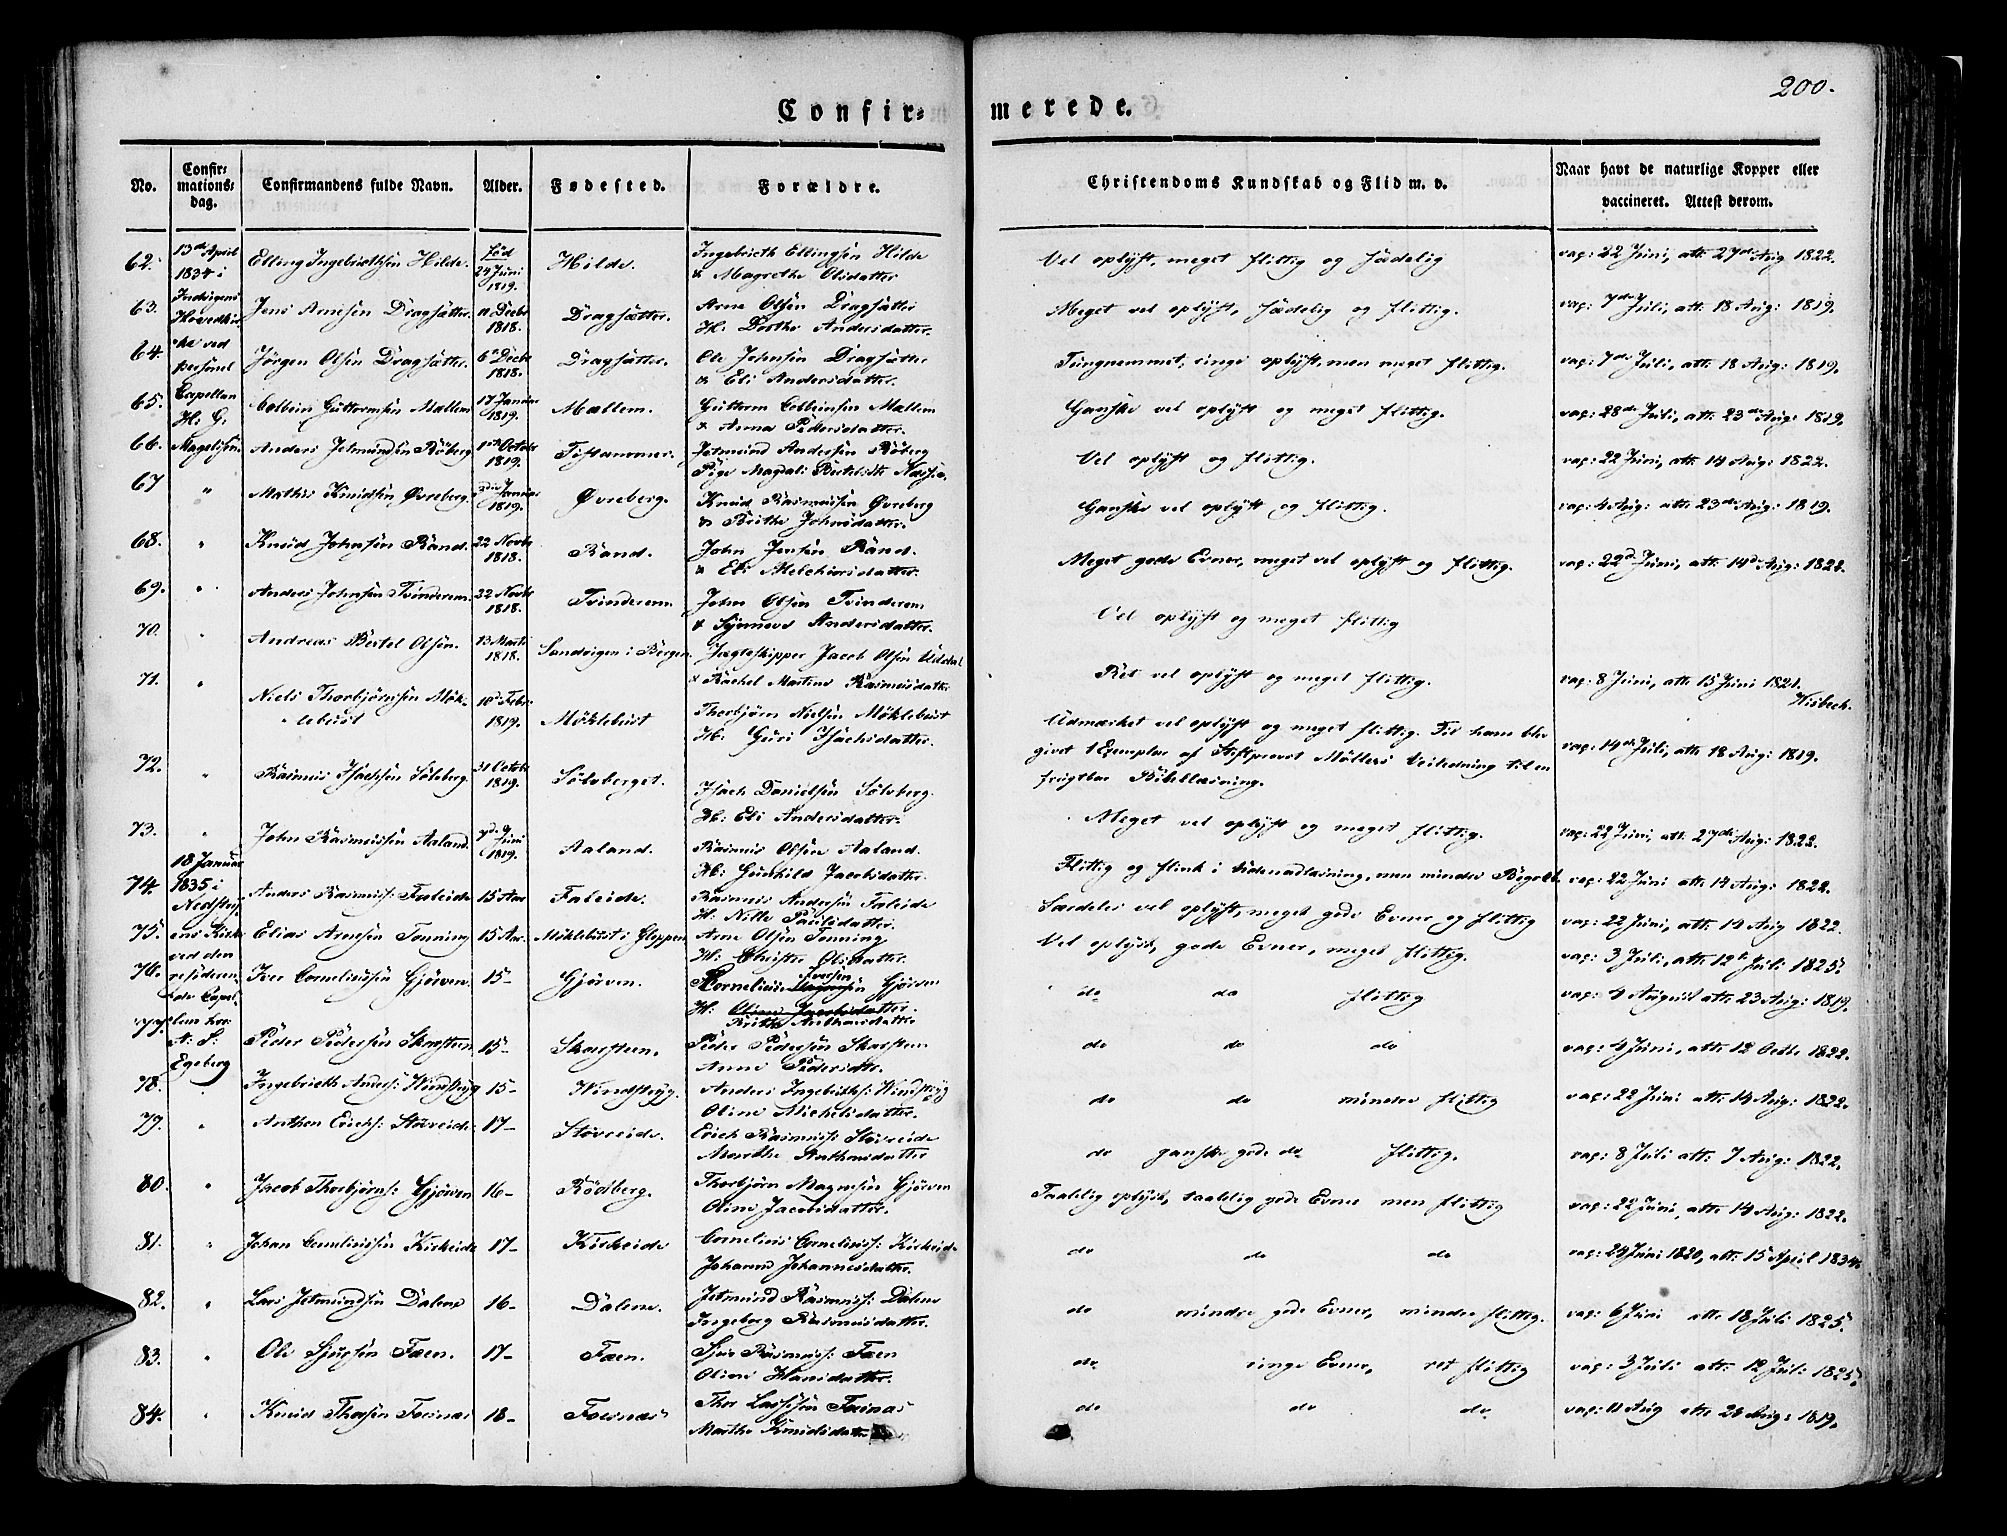 200.
Confir= merede.
No.
Confir=
mations=
dag.
Confirmandens fulde Navn.
Alder.
Fødested.
Forældre.
Christendoms Kundskab og Flid m. v.
Naar havt de naturlige Kopper eller
vaccineret. Attest derom.
13de April
1834 i
Indvigens
Hovedkir-
ke ved
personel
Capellan
H. G.
Magelssøn
62. Elling Ingebrethsen Hilde. Fød 24 Juni 1819. Hilde. Ingebrecth Ellingsen Hilde
& Magrethe Olsdatter
Vel oplyst, meget flittig og sædelig vac: 22 Juni, att: 27de Aug 1822.
63. Jens Arnesen Dragsætter. 11 Decbr 1818. Dragsætter. Arne Olsen Dragsætter
H: Dorthe Andersdatter.
Meget vel oplyst, sædelig og flittig. vac: 7de Juli, att: 18 Aug: 1819.
64. Jørgen Olsen Dragsætter. 6te Decbr 1818. Dragsætter. Ole Johnsen Dragsætter
& Eli Andersdatter.
Tungnemmet, ringe oplyst, men meget flittig. vac: 7de Juli, att: 18 Aug: 1819.
65. Colbein Guttormsen Mællem 17 Januar 1819. Mællem. Guttorm Colbeinsen Mællem
& Anna Pedersdatter.
Ganske vel oplyst og meget flittig. vac: 28de Juli, att: 23de Aug: 1819.
66. Anders Jetmundsen Röberg 1ste Octobr 1819. Jetmund Andersen Röberg
Pige Magdali Bertelsdtr
Vel oplyst og flittig. vac: 22 Juni, att: 14 Aug: 1822.
67 " Mathis Knudsen Øvreberg. Januar 1819. Øvreberg. Knud Rasmussen Øvreberg
& Brithe Johnsdatter.
Ganske vel oplyst og flittig. vac: 4 Aug: att: 23de Aug: 1819.
68. " Knud Johnsen Rand. 22 Novbr 1818. Rand. John Jensen Rand.
& Eli Melchiorsdatter.
Meget gode Evner, meget vel oplyst og flittig. vac: 22d Juni, att: 14d Aug: 1822.
69. " Anders Johnsen Tvinderem. 22 Novbr 1818. Tvinderem. John Olsen Tvinderem
& Synneve Andersdatter.
Vel oplyst og meget flittig
70. " Andreas Bertel Olsen. 13 Marts 1818. Sandvigen i Bergen. Jagteskipper Jacob Olsen
& Rachel Martine Rasmusdatter
Ret vel oplyst og meget flittig. vac: 8 Juni, att: 15 Juni 1821.
Wisbech.
71. " Niels Thorbjörnsen Mök-
lebust 10de Febr: 1819. Möklebust Thorbjörn Nielsen Möklebust
H: Guri Isachsdatter.
Udmærket vel oplyst og meget flittig. Til ham blev
givet 1 Exemplar af Stiftprovst Møllers Veiledning til en
frugtbar Bibellæsning.
vac: 14de Juli, att: 18 Aug: 1819.
72. " Rasmus Isachsen Sölvberg. 31 Octobr 1819. Sölvberget. Isach Danielsen Sölvberg.
H: Eli Andersdatter.
Meget vel oplyst og meget flittig. vac: 22 Juni, att: 27de Aug: 1822.
73. " John Rasmussen Aaland. Juni 1819. Aaland. Rasmus Olsen Aaland.
H: Gunhild Jacobsdatter.
Flittig og flink i Udenadlæsning, men mindre Begreb. vac: 22 Juni att: 14 Aug: 1822.
18 Januar
1835 i
Nedstry-
ens Kirke
ved den
resideren-
de Capel-
lan hr:
A: S:
Egeberg
74. Anders Rasmuss: Faleide 15 Aar Faleide. Rasmus Andersen Faleide
H: Nille Paulsdatter.
Særdeles vel oplyst, meget gode Evner, og flittig vac: 22 Juni, att: 14 Aug 1822.
75. Elias Arnesen Tonning 15 Aar. Möklebust i Gloppen Arne Olsen Tonning
H: Christie Olsdatter.
Vel oplyst, gode Evner, meget flittig. vac: 3 Juli, att: 12te Juli: 1825.
76. Iver Corneliussen Gjörven. 15- Gjörven. Cornelius Iversen Gjörven
H: Oline Jacobsdatter.
Brithe Anthonsdatter
do do flittig vac: 4 August att: 23 Aug: 1819.
77. Peder Pedersen Skarsteen. 15- Skarsteen. Peder Pedersen Skarsteen
Anne Pedersdtr.
do do do vac: 4 Juni, att: 12 Octbr 1822.
78. Ingebricth Anders: Windstryg 15- Windstryg. Anders Ingebricths: Windstryg
Oline Michelsdatter.
do do mindre flittig vac: 22 Juni att: 14 Aug: 1822.
79. " Anthon Erichs: Stövreide. 17- Stövreide. Erich Rasmuss: Stövreide
Marthe Anthonsdatter
do ganske gode do flittig. vac: 8 Juli att: 7 Aug: 1822.
80. " Jacob Thorbjörns: Gjörven 16- Rödberg. Thorbjörn Magnesen Gjörven
Oline Jacobsdatter.
Taalelig oplyst, taalelig gode Evner men flittig vac: 22 Juni, att: 14 Aug: 1822.
81. " Johan Corneliussen Kirkeide 17- Kirkeide Cornelius Corneliuss: Kirkeide
Johanne Johannesdatter.
do do do vac: 29 Juni 1820, att: 15 April 1834.
82. " Lars Jetmundsen Dalene 16- Dalene. Jetmund Rasmuss: Dalene
Ingeborg Rasmusdatter.
do mindre gode Evner, mindre flittig. vac: 6 Juni att: 18 Juli 1825.
83. " Ole Siursen Faen. 17- Faen. Siur Rasmuss: Faen
Oline Hansdatter.
do ringe Evner, ret flittig vac: 3 Juli att: 12 Juli: 1825.
84. " Knud Thorsen Forsnæs 18- Forsnæs Thor Lassesen Forsnæs
Marthe Knudsdatter
do do do vac: 11 Aug att: 26 Aug: 1819.